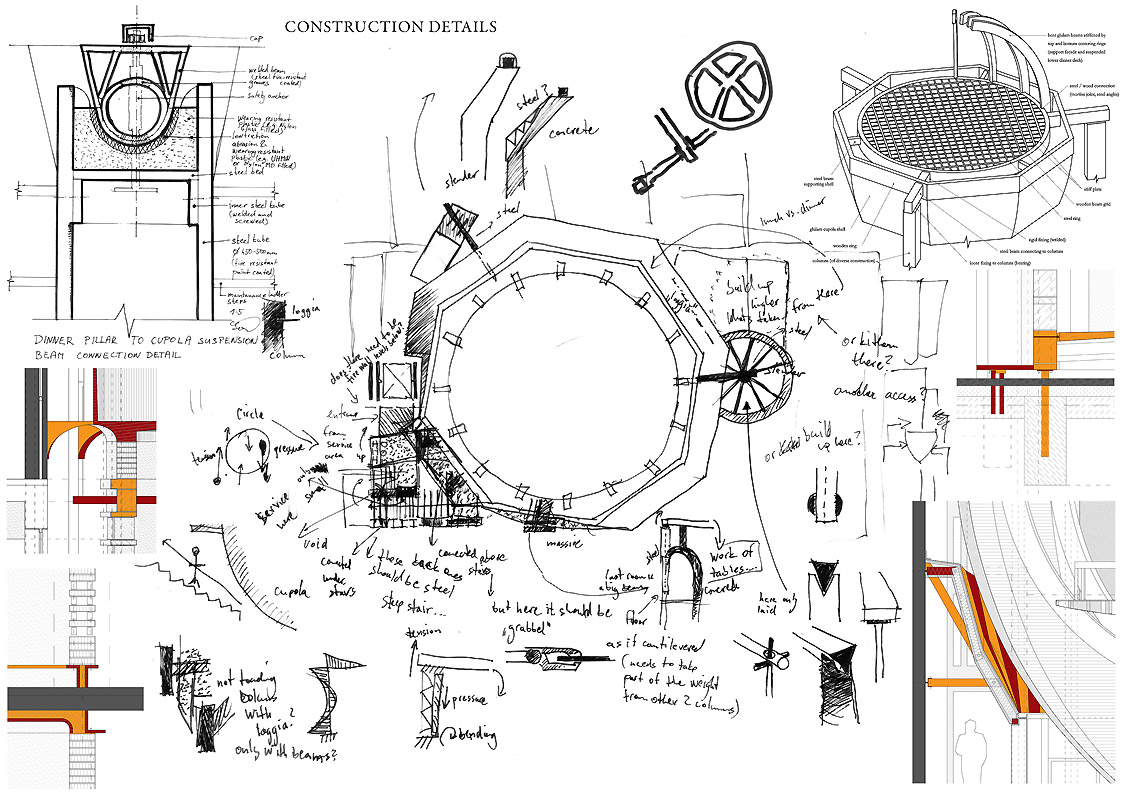 CONSTRUCTION DETAILS
cap
welded beam
(steel fire-resistant
coated)
safety anchor
wearing resistant
plastic (e.g. nylon
glass filled)
abrasion &
wearing resistant
plastic (e.g. UHMW
or Nylon MD filled)
steel bed
inner steel tube
(welded and
screwed)
steel tube
Ø 450-500mm
(fire resistant
paint coated)
maintanance ladder
steps
1:5
loggia
column
DINNER PILLAR TO CUPOLA SUSPENSION
BEAM CONNECTION DETAIL
steel?
concrete
slender
steel
lunch vs. dinner
bent glulam beams stiffened by
top and bottom centering rings
(support facade and suspended
lower dinner deck)
steel / wood connection
(mortise joint, steel angles)
steel beam
supporting shell
stiff plate
wooden beam grid
steel ring
glulam cupola shell
rigid fixing (welded)
wooden ring
steel beam connecting to columns
columns (of diverse construction)
loose fixing to columns (bearing)
"build up
higher
what's taken
from there)
steel
slender
or kitchen
there?
another access?
or build
up here?
does there need to be
fire wall
entrance
from
service
area
up
Circle
tension
pressure
only
small
service
here
void
counted
under
stairs
cupola
these back ones
should be steel
step stair...
connected above
stairs
but here it should be
"grabbed"
massive
steel
floor
work of
tables...
concrete
here only
laid
as if cantilevered
(needs to take
part of the weight
from other 2 columns)
tension
pressure
bending
not touching
columns
with
loggia?
only with beams?